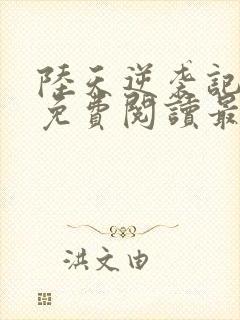 陸天逆袭記
免費閱讀最
洪文由